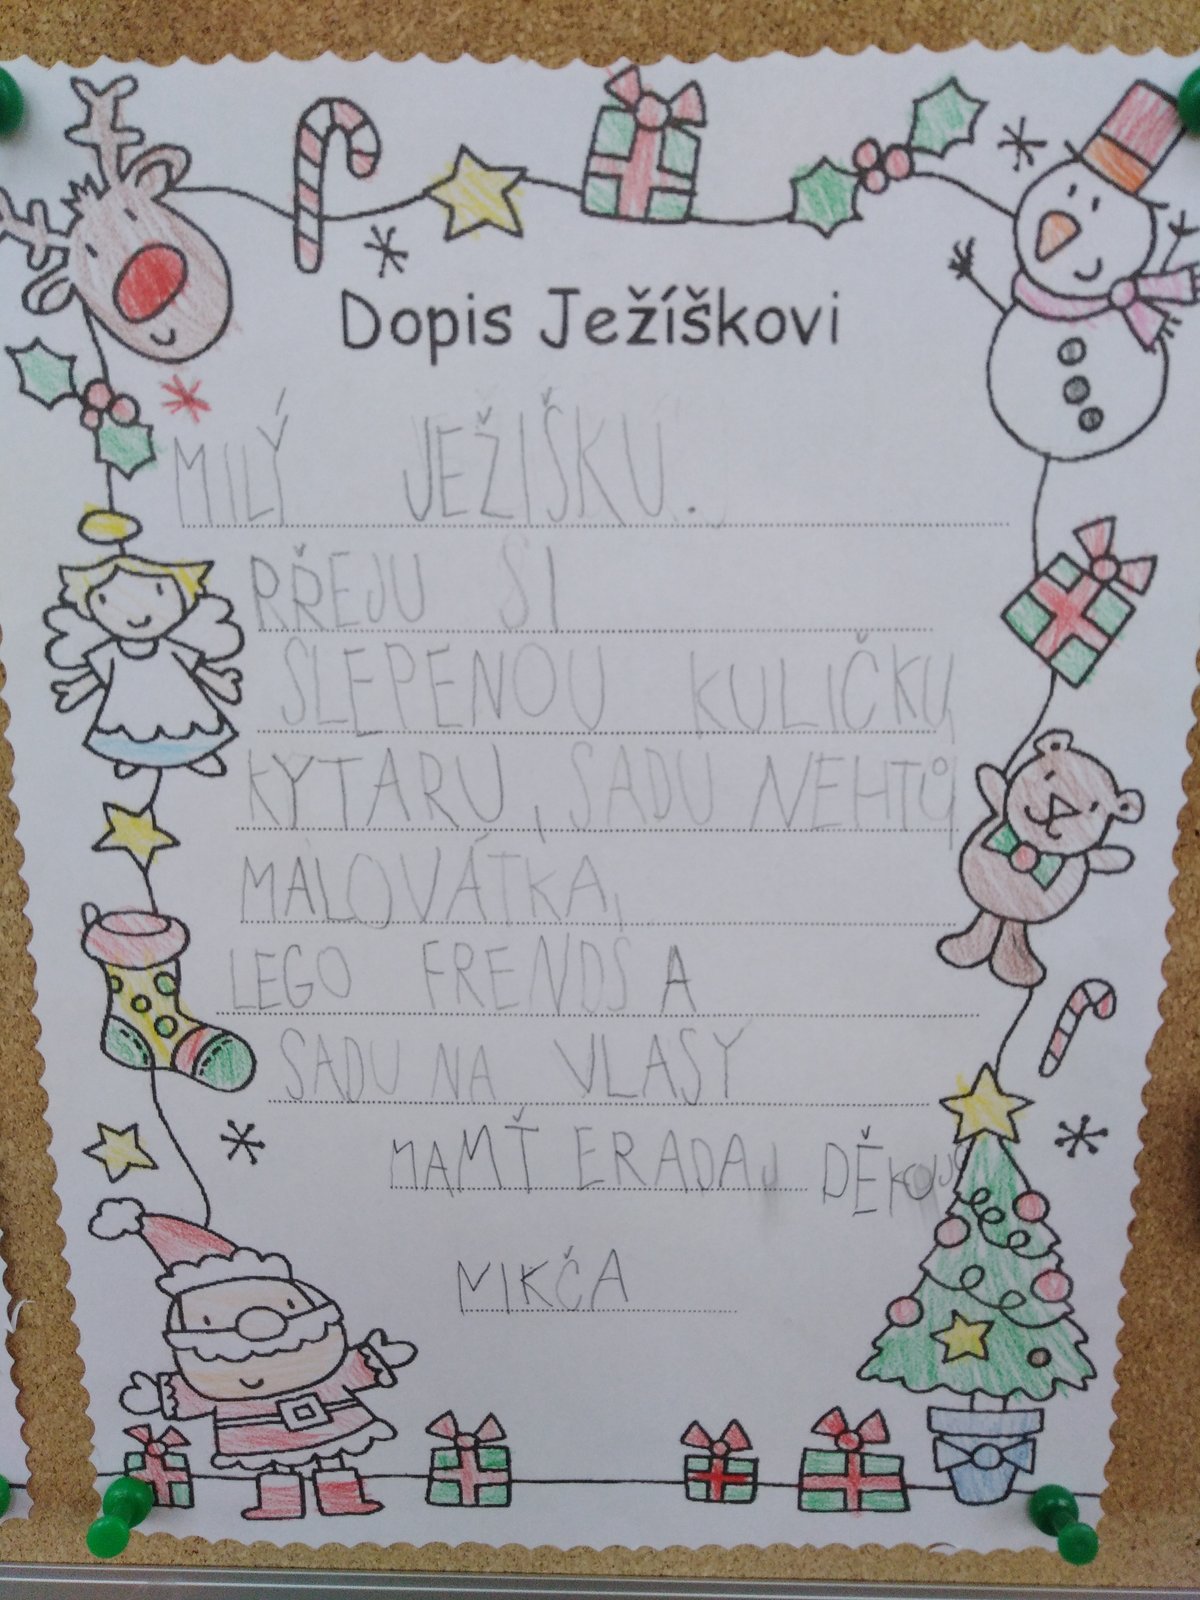 Dopis Ježíškovi
MILÝ JEŽIŠKU.
RŘEJU SI
SLEPENOU KULIČKU,
KYTARU, SADU NEHTŮ,
MALOVÁTKA,
LEGO FRENDS A
SADU NA VLASY
MAMŤ ERADA, DĚKUJU
NIKČA